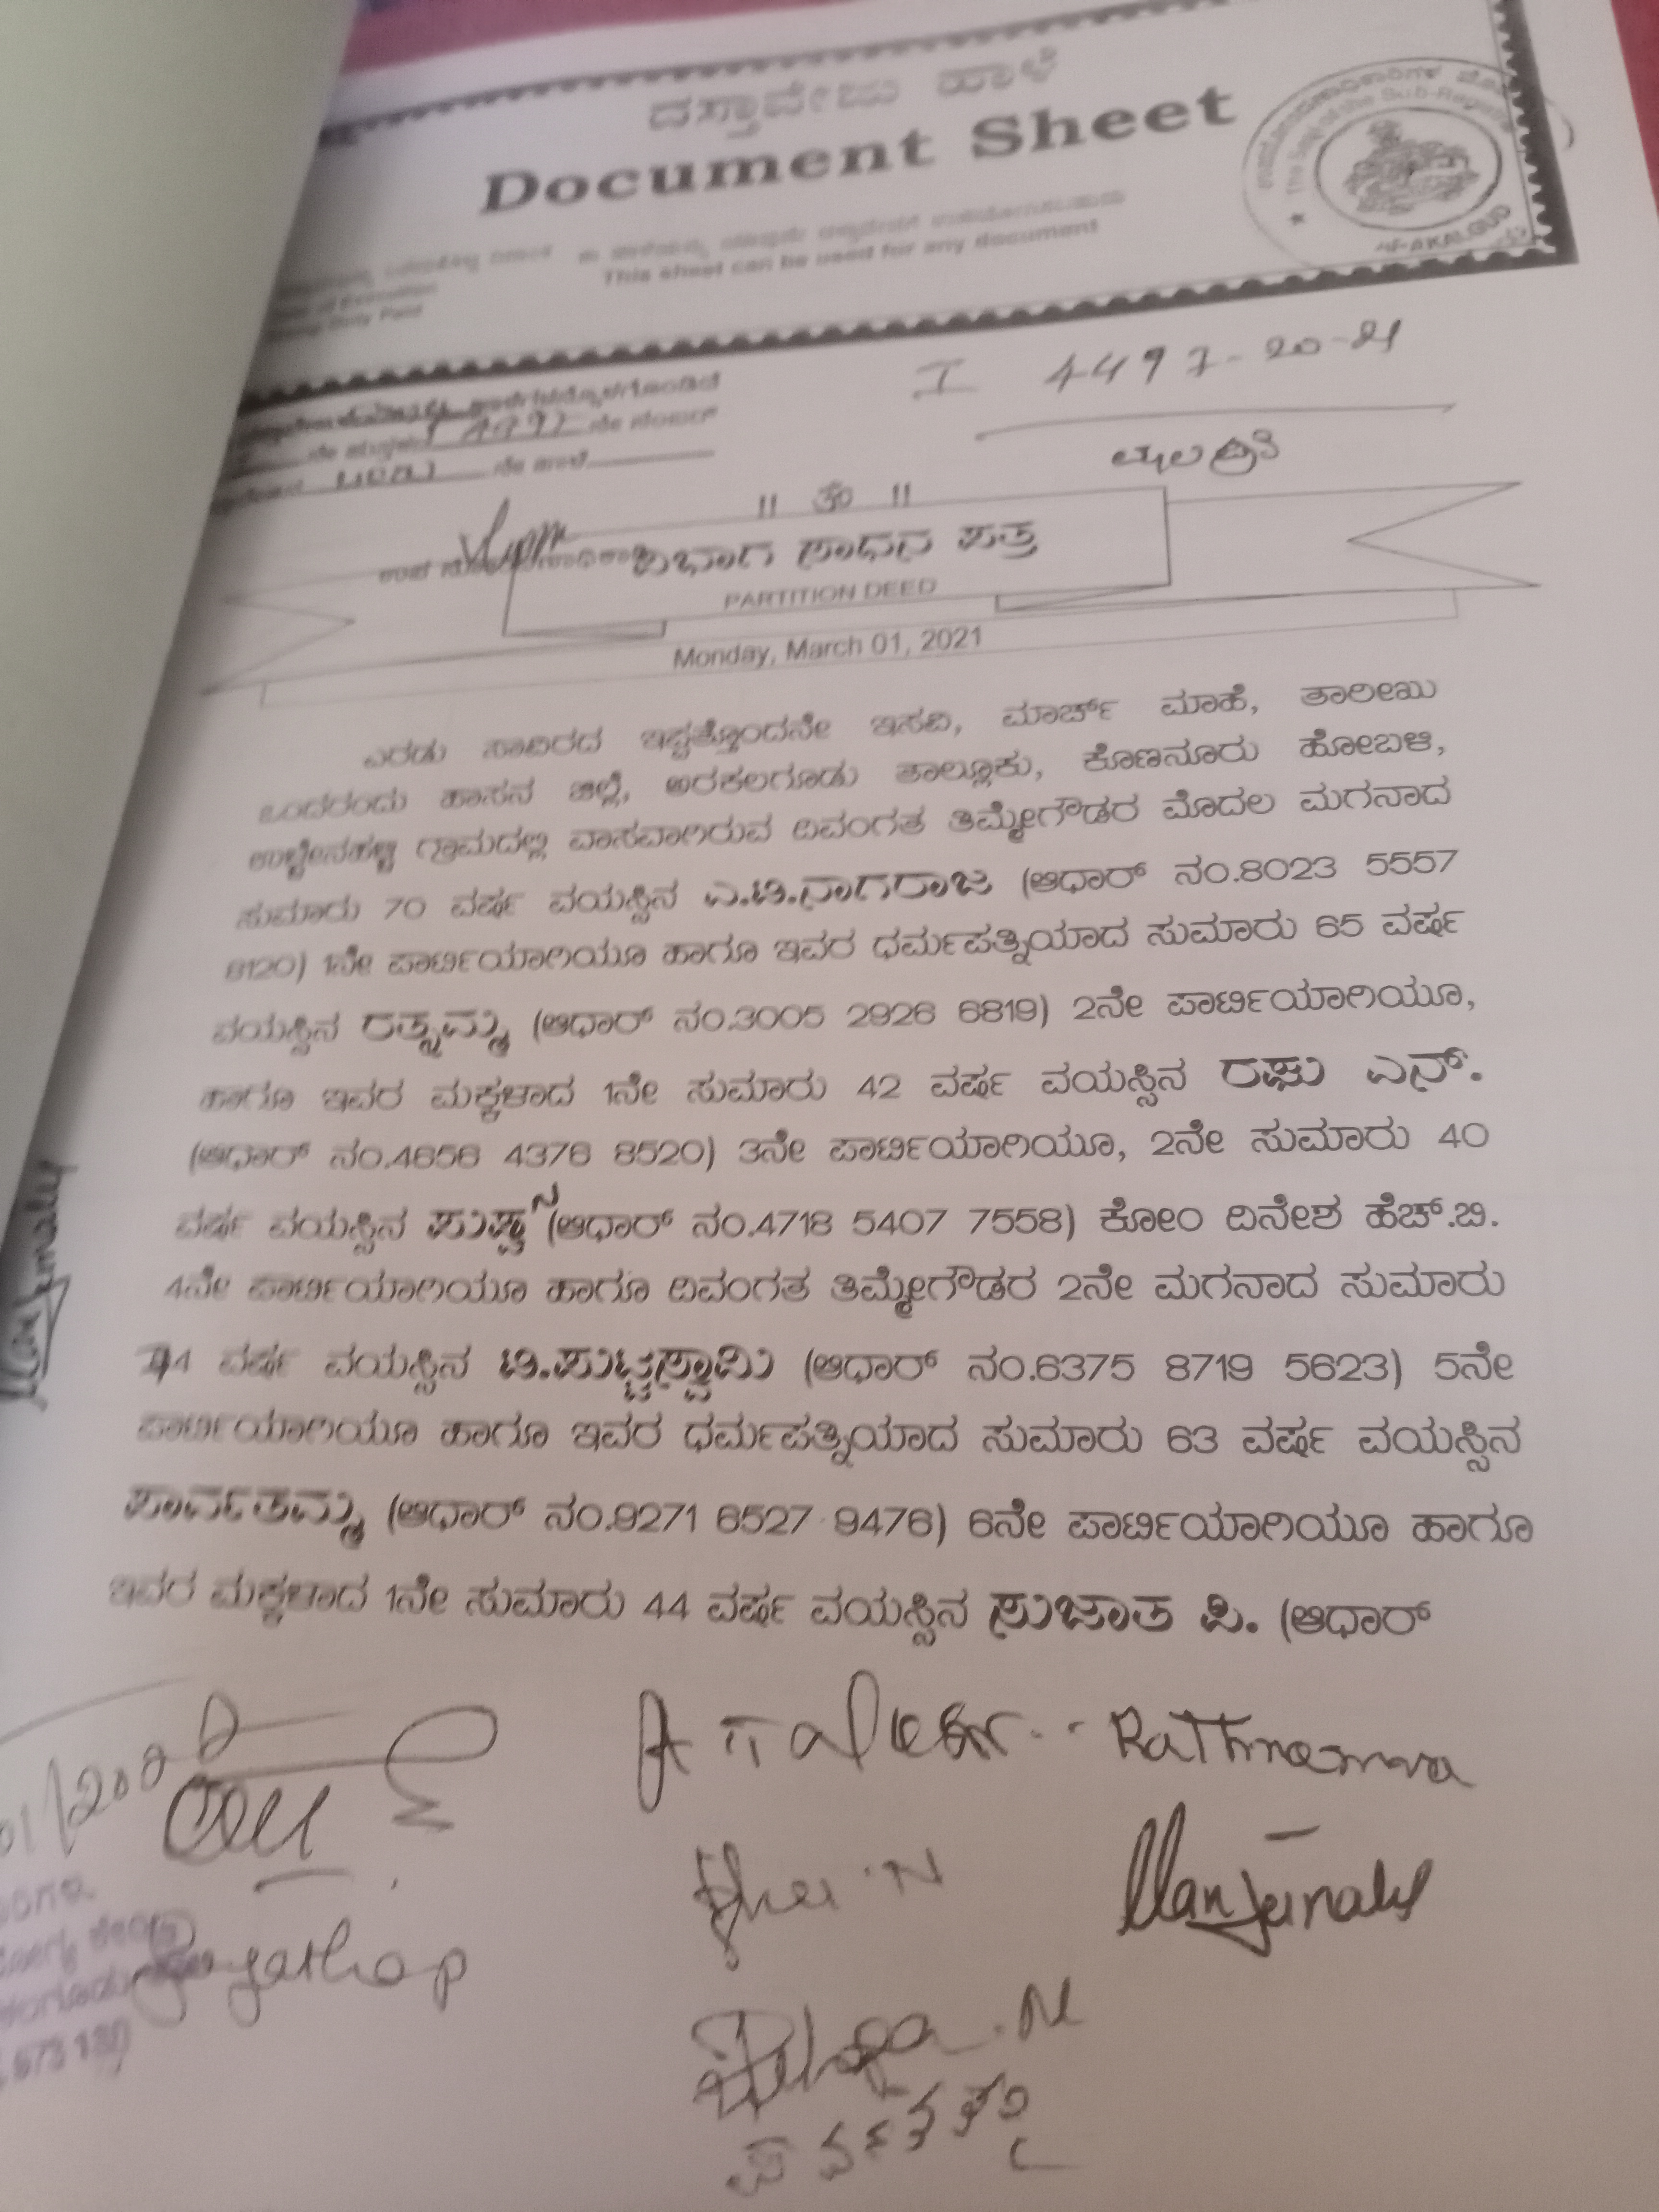 ದಸ್ತಾವೇಜು ಹಾಳೆ
Document Sheet
This sheet can be used for any document
The Seal of the Sub-Registrar
ARAKALGUD
of Execution
Duty Paid
I 4497-20-21
ಮೂಲ ಪ್ರತಿ
4497 ನೇ ನಂಬರ್
ನೇ ಹಾಳೆ
॥ ಓಂ ॥
ವಿಭಾಗ ಸಾಧನ ಪತ್ರ
PARTITION DEED
Monday, March 01, 2021
ಎರಡು ಸಾವಿರದ ಇಪ್ಪತ್ತೊಂದನೇ ಇಸವಿ, ಮಾರ್ಚ್ ಮಾಹೆ, ತಾರೀಖು
ಒಂದರಂದು ಹಾಸನ ಜಿಲ್ಲೆ, ಅರಕಲಗೂಡು ತಾಲ್ಲೂಕು, ಕೊಣನೂರು ಹೋಬಳಿ,
ಗ್ರಾಮದಲ್ಲಿ ವಾಸವಾಗಿರುವ ದಿವಂಗತ ತಿಮ್ಮೇಗೌಡರ ಮೊದಲ ಮಗನಾದ
ಸುಮಾರು 70 ವರ್ಷ ವಯಸ್ಸಿನ ಎ.ಟಿ.ನಾಗರಾಜ (ಆಧಾರ್ ನಂ.8023 5557
8120) 1ನೇ ಪಾರ್ಟಿಯಾಗಿಯೂ ಹಾಗೂ ಇವರ ಧರ್ಮಪತ್ನಿಯಾದ ಸುಮಾರು 65 ವರ್ಷ
ವಯಸ್ಸಿನ ರತ್ನಮ್ಮ (ಆಧಾರ್ ನಂ.3005 2926 6819) 2ನೇ ಪಾರ್ಟಿಯಾಗಿಯೂ,
ಹಾಗೂ ಇವರ ಮಕ್ಕಳಾದ 1ನೇ ಸುಮಾರು 42 ವರ್ಷ ವಯಸ್ಸಿನ ರಘು ಎನ್.
(ಆಧಾರ್ ನಂ.4656 4376 8520) 3ನೇ ಪಾರ್ಟಿಯಾಗಿಯೂ, 2ನೇ ಸುಮಾರು 40
ವರ್ಷ ವಯಸ್ಸಿನ ಪುಷ್ಪಾ (ಆಧಾರ್ ನಂ.4718 5407 7558) ಕೋಂ ದಿನೇಶ ಹೆಚ್.ಬಿ.
4ನೇ ಪಾರ್ಟಿಯಾಗಿಯೂ ಹಾಗೂ ದಿವಂಗತ ತಿಮ್ಮೇಗೌಡರ 2ನೇ ಮಗನಾದ ಸುಮಾರು
74 ವರ್ಷ ವಯಸ್ಸಿನ ಟಿ.ಪುಟ್ಟಸ್ವಾಮಿ (ಆಧಾರ್ ನಂ.6375 8719 5623) 5ನೇ
ಪಾರ್ಟಿಯಾಗಿಯೂ ಹಾಗೂ ಇವರ ಧರ್ಮಪತ್ನಿಯಾದ ಸುಮಾರು 63 ವರ್ಷ ವಯಸ್ಸಿನ
ಪಾರ್ವತಮ್ಮ (ಆಧಾರ್ ನಂ.9271 6527 9476) 6ನೇ ಪಾರ್ಟಿಯಾಗಿಯೂ ಹಾಗೂ
ಇವರ ಮಕ್ಕಳಾದ 1ನೇ ಸುಮಾರು 44 ವರ್ಷ ವಯಸ್ಸಿನ ಸುಜಾತ ಪಿ. (ಆಧಾರ್
Rathnamma
Manjunath
Manjunath
Pushpa.N
ಪಾರ್ವತಮ್ಮ